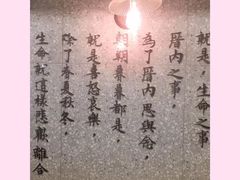 就是，生命之事，
厝內之事，
為了厝內思與念，
朝朝暮暮都是，
就是喜怒哀樂，
除了春夏秋冬，
生命就這樣悲歡離合